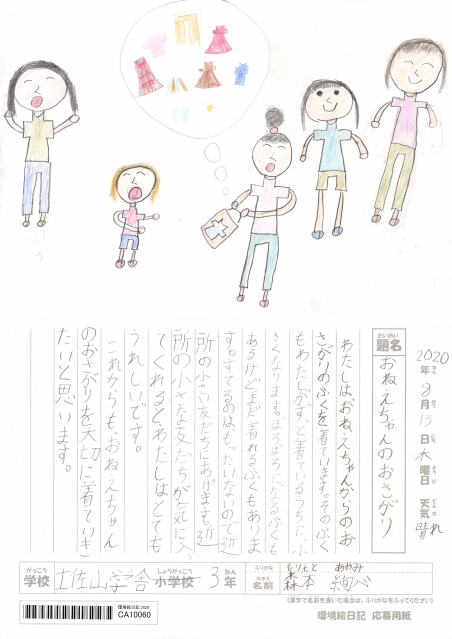 2020年8月13日木曜日 天気 晴れ
だいめい
題名
おねえちゃんのおさがり
わたしは、おねえちゃんからのお
さがりのふくを着ています。そのふく
もわたしがずっと着ているうちに、小
さくなります。ぼろぼろになるふくも
あるけどまだ着れるふくもありま
す。すてるのはもったいないので近
所の小さい友だちにあげます。近
所の小さな友だちが気に入っ
てくれるとわたしはとても
うれしいです。
これからも、おねえちゃん
のおさがりを大切に着ていき
たいと思います。
がっこう しょうがっこう ねん ふりがな もりもと あやみ
学校 土佐山学舎 小学校 3年 名前 森本 絢心
(漢字で名前を書いた場合は、ふりがなをふってください)
環境絵日記 2020
CA10060
環境絵日記 応募用紙